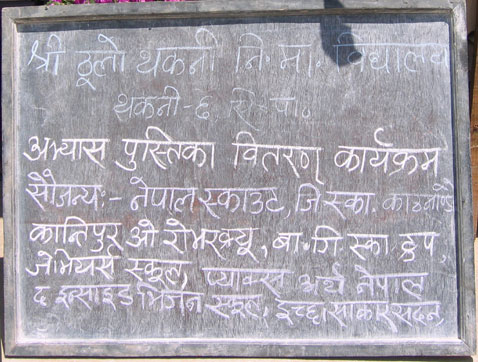 श्री ठूलो थकनी नि. मा. विद्यालय
थकनी-६ सि-पा.
अभ्यास पुस्तिका वितरण कार्यक्रम
सौजन्य:- नेपाल स्काउट, जि.स्का. काठमाण्डौ
कान्तिपुर ओ रोभरक्र्यू, बा.जि.स्का. ट्रुप
जेभियर्स स्कूल, प्याक्स अर्थ नेपाल
द इन्साइड भिजन स्कूल, इच्छा साकार सदन,